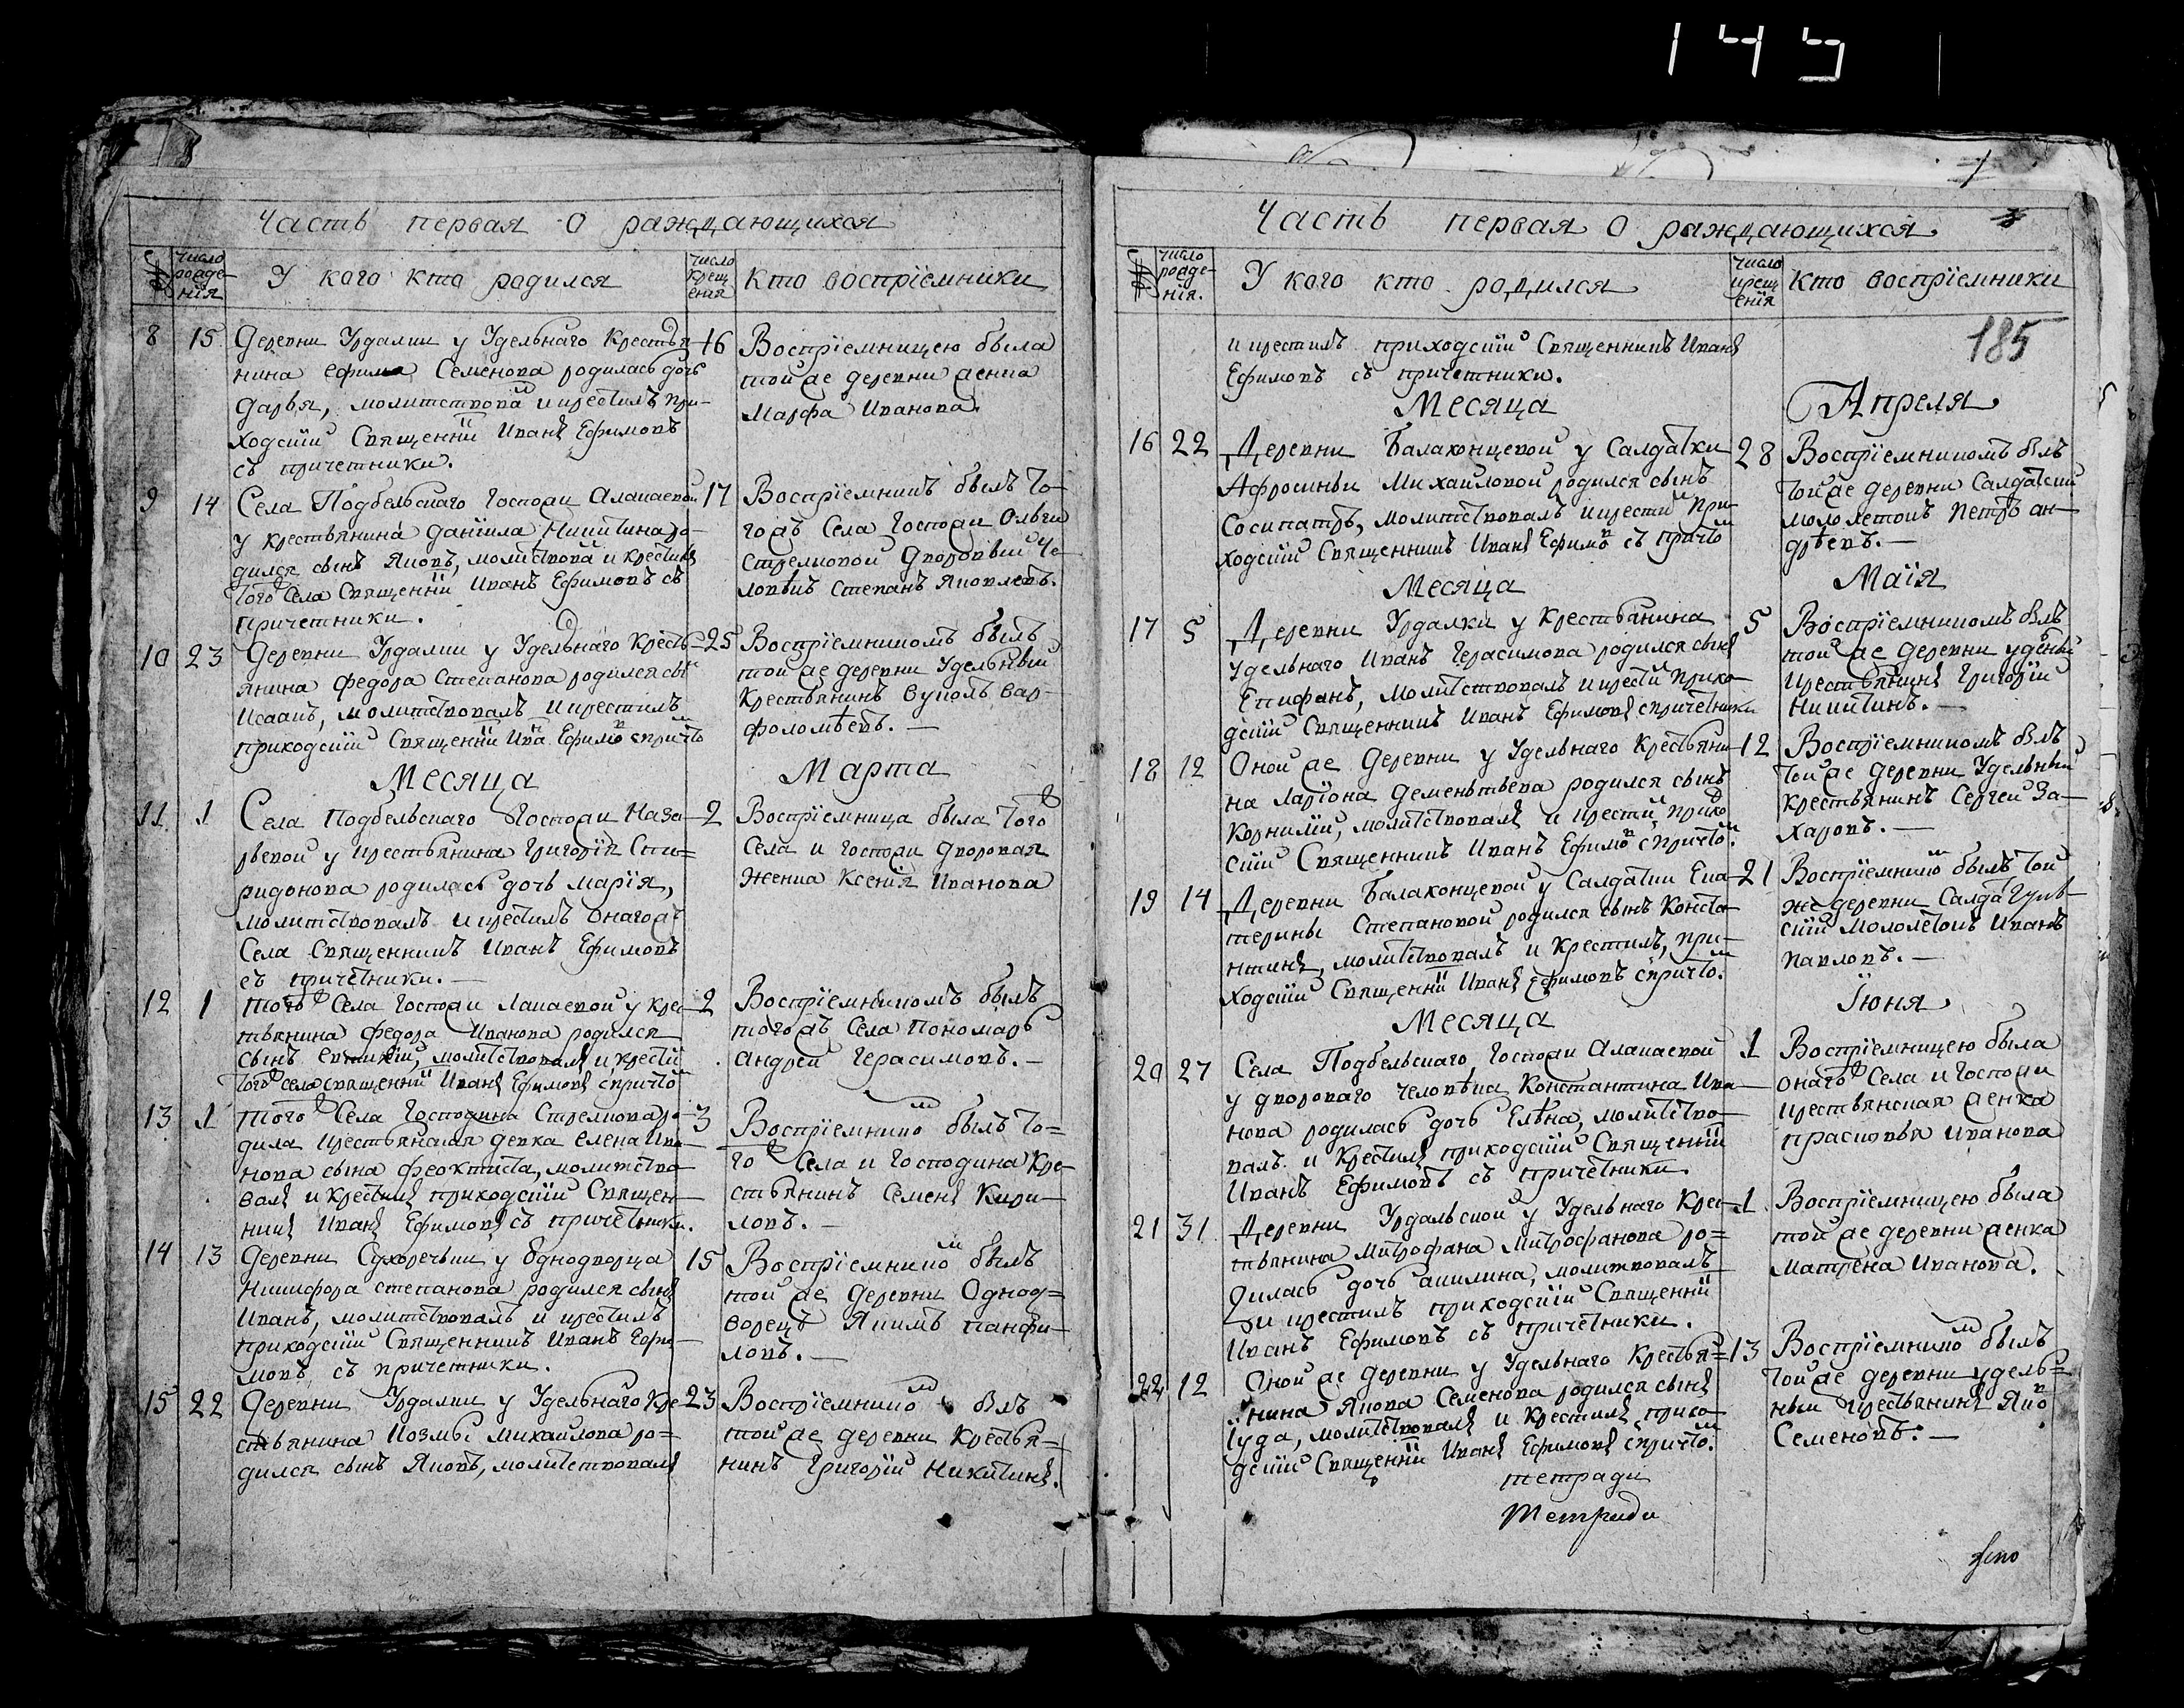 145
Часть первая о раждающихся
№
число рожде-нїя
У кого кто родился
число крещенїя
кто воспрїемники
8 15 Деревни Урдалки у Удельнаго Крестья-
нина Ефима Семенова родилась дочь
Дарья, молитствова и крестилъ при-
ходскїй Священнїй Иванъ Ефимовъ
съ причетники.
16 Воспрїемницею была
той же деревни женка
Марфа Иванова.
9 14 Села Подбельскаго Госпожи Алашевой
у крестьянина Данїила Никитина ро-
дился сынъ Яковъ, молитствова и крестилъ
того Села Священнїй Иванъ Ефимовъ съ
причетники.
17 Воспрїемникъ былъ То-
гожъ Села Госпожи Ольги
Стрелковой Дворовый Че-
ловѣкъ Степанъ Яковлевъ.
10 23 Деревни Урдалки у Удельнаго Кресть-
янина Федора Степанова родился сы
Исаакъ, молитствовалъ и крестилъ
приходскїй Священнїй Ива Ефимо с причто
25 Воспрїемникомъ былъ
той же деревни Удельный
Крестьянинъ Вуколъ Вар-
фоломѣевъ.
Месяца Марта
11 1 Села Подбельскаго Госпожи Наза-
рьевой у крестьянина Григорїя Спи-
ридонова родилась дочь Марїя,
молитствовалъ и крестилъ онагожъ
Села Священникъ Иванъ Ефимовъ
съ причетники.
2 Воспрїемница была того
Села и Госпожи дворовая
женка Ксенїя Иванова
12 1 Того Села Госпожи Лашевой у крес-
тьянина Федора Иванова родился
сынъ Евтихїй, молитствовалъ и крести
того села священнїй Иванъ Ефимовъ с причто
2 Воспрїемникомъ былъ
тогожъ Села Пономарь
Андрей Герасимовъ.
13 1 Того Села Господина Стрелкова ро-
дила крестьянская девка Елена Ива-
нова сына Феоктиста, молитство-
валъ и крестилъ приходскїй Священ-
никъ Иванъ Ефимовъ съ причетники.
3 Воспрїемнико былъ То-
го Села и Господина Кре-
стьянинъ Семенъ Кири-
ловъ.
14 13 Деревни Сухоречки у Однодворца
Никифора Степанова родился сынъ
Иванъ, молитствовалъ и крестилъ
приходскїй Священникъ Иванъ Ефи-
мовъ съ причетники.
15 Воспрїемнико былъ
той же Деревни Однод-
ворецъ Якимъ Панфи-
ловъ.
15 22 Деревни Урдалки у Удельнаго Кре-
стьянина Козмы Михайлова ро-
дился сынъ Яковъ, молитствовалъ
23 Воспрїемнико былъ
той же деревни Крестья-
нинъ Григорїй Никитинъ.
Часть первая о раждающихся
№
число рожде-нїя.
У кого кто родился
число крещенїя
кто воспрїемники
185
и крестилъ приходскїй Священникъ Иванъ
Ефимовъ съ причетники.
Месяца Апреля
16 22 Деревни Балаконцевой у Салдатки
Афросиньи Михайловой родился сынъ
Сосипатръ, молитствовалъ и крести при-
ходскїй Священникъ Иванъ Ефимо съ причто
28 Воспрїемникомъ былъ
той же деревни Салдатскїй
молодетокъ Петръ Ан-
дрѣевъ.
Месяца Маїя
17 5 Деревни Урдалки у Крестьянина
Удельнаго Иванъ Герасимова родился сынъ
Епифанъ, молитствовалъ и крести прихо-
дскїй Священникъ Иванъ Ефимовъ с причетники
5 Воспрїемникомъ былъ
той же деревни удены
Крестьянинъ Григорїй
Никитинъ.
18 12 Оной же Деревни у Удельнаго Крестьяни-
на Ларїона Дементьева родился сынъ
Корнилїй, молитствовалъ и крести, прихо
скїй Священникъ Иванъ Ефимо с причто.
12 Воспрїемникомъ былъ
той же деревни Удельный
крестьянинъ Сергей За-
харовъ.
19 14 Деревни Балаконцевой у Салдатки Ека-
терины Степановой родился сынъ Конста-
нтинъ, молитствовалъ и Крестилъ, при-
ходскїй Священнїй Иванъ Ефимовъ с причто.
21 Воспрїемнико былъ той
же деревни
скїй Молодетокъ Иванъ
Павловъ.
Месяца Їюня
20 27 Села Подбельскаго, Госпожи Алашевой
у двороваго человѣка Константина Ива-
нова родилась дочь Елѣна, молитство-
валъ и Крестилъ приходскїй Священнїй
Иванъ Ефимовъ съ причетники.
1 Воспрїемницею была
онаго Села и Госпожи
крестьянская женка
Прасковья Иванова
21 31 Деревни Урдальской у Удельнаго Крес-
тьянина Митрофана Митрофанова ро-
дилась дочь Акилина, молитвовалъ
и крестилъ приходскїй Священнїй
Иванъ Ефимовъ съ причетники.
1 Воспрїемницею была
той же деревни женка
Матрена Иванова.
22 12 Оной же деревни у Удельнаго Крестья-
нина Якова Семенова родился сынъ
Їуда, молитствовалъ и Крестилъ прихо-
дскїй Священнїй Иванъ Ефимовъ с причто.
13 Воспрїемнико былъ
той же деревни удель-
ный крестьянинъ Яко
Семеновъ.
тетради
Тетради